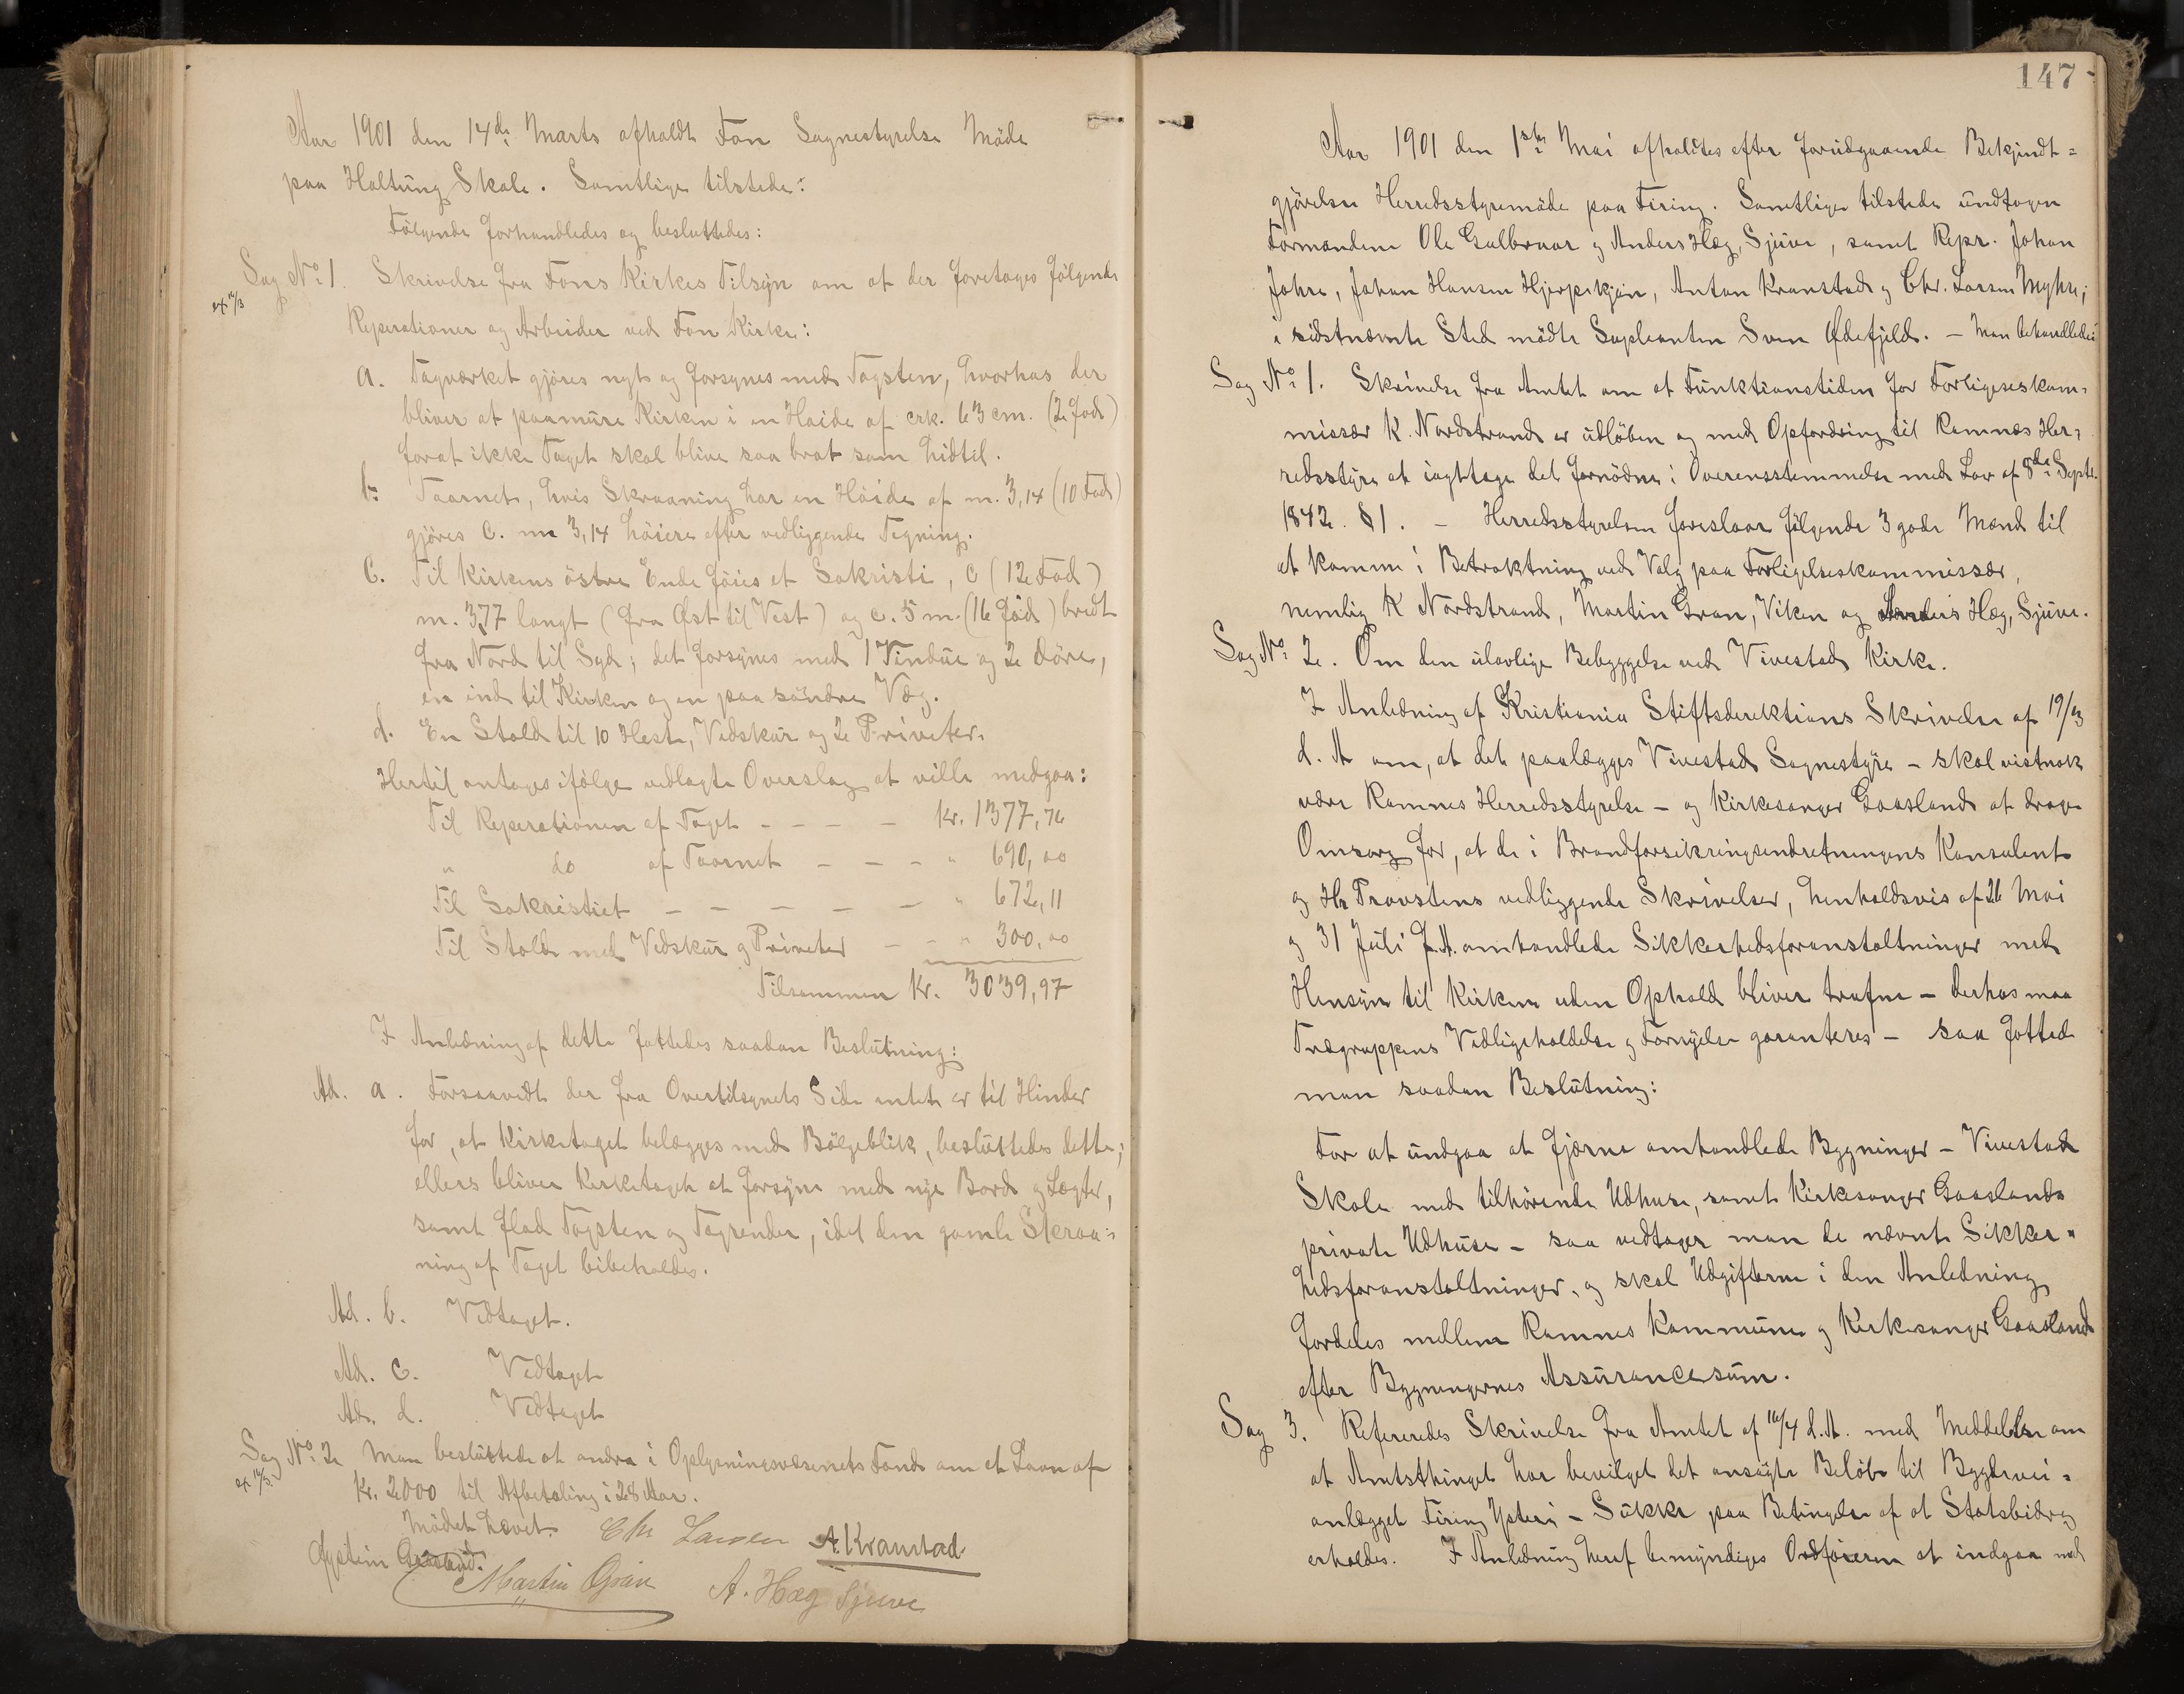 Aar 1901 den 14de Marts afholdt Fon Sognestyrelse Møde
paa Haltung Skole. Samtlige tilstede:
Følgende forhandledes og besluttedes:
Sag No 1. Skrivelse fra Fons Kirkes Tilsyn om at der foretages følgende
Reperationer og Arbeider ved Fon Kirke:
a. Tagværket gjøres nyt og forsynes med Tagsten, hvorhos der
bliver at paamure Kirken i en Høide af crk. 63 cm. (2 Fod)
forat ikke Taget skal blive saa brat som hidtil.
b. Taarnet, hvis Skraaning har en Høide af m. 3,14 (10 Fod)
gjøres c. m 3,14 høiere efter vedliggende Tegning.
c. Til Kirkens østre Ende føies et Sakristi, c (12 Fod)
m. 3,77 langt (fra Øst til Vest) og c. 5 m. (16 Fod) bredt
fra Nord til Syd; det forsynes med 1 Vindue og 2 Døre,
en ind til Kirken og en paa søndre Væg.
d. En Stald til 10 Heste, Vedskur og 2 Priveter.
Hertil antages ifølge vedlagte Overslag at ville medgaa:
Til Reperationen af Taget - - - - Kr. 1377,76
" do af Taarnet - - - " 690,00
Til Sakristiet - - - - - " 672,11
Til Stald med Vedskur og Priveter - - " 300,00
Tilsammen Kr. 3039,97
I Anledning af dette fattedes saadan Beslutning:
Ad. a. Forsaavidt der fra Overtilsynets Side intet er til Hinder
for, at Kirketaget belægges med Bølgeblik, besluttedes dette;
ellers bliver Kirketaget at forsyne med nye Bord og Lægter,
samt flad Tagsten og Tagrender, idet den gamle Skraa=
ning af Taget bibeholdes.
Ad. b. Vedtaget.
Ad. c. Vedtaget
Ad. d. Vedtaget
Sag No 2 Man besluttede at andra i Oplysningsvæsenets Fond om et Laan af
Kr. 2000 til Afbetaling i 28 Aar.
Mødet hævet. Chr Larsen A. Kranstad
Øystein Gaasland.
Martin Gran A. Hæg Sjuve
147
Aar 1901 den 1ste Mai afholdtes efter forudgaaende Bekjendt=
gjørelse Herredsstyremøde paa Firing. Samtlige tilstede undtagen
Formændene Ole Gulbraar og Anders Hæg, Sjuve, samt Repr. Johan
Johre, Johan Hansen Hjerpekjøn, Anton Kranstad og Chr. Larsen Myhre;
i sidstnævnte Sted mødte Supleanten Sven Ødefjeld. - Man behandlede:
Sag No 1. Skrivelse fra Amtet om at Funktionstiden for Forligelseskom=
missær K. Nordstrand er udløben og med Opfordring til Ramnæs Her=
redsstyre at iagttage det fornødne i Overensstemmelse med Lov af 8de Septr.
1842 § 1. - Herredsstyrelsen foreslaar følgende 3 gode Mænd til
at komme i Betraktning ved Valg paa Forligelseskommissær,
nemlig K Nordstrand, Martin Gran, Viken og Anders Hæg, Sjuve.
Sag No 2. Om den ulovlige Bebyggelse ved Vivestad Kirke.
I Anledning af Kristiania Stiftsdirektions Skrivelse af 19/3
d. A om, at det paalægges Vivestad Sognestyre - skal vistnok
være Ramnes Herredsstyrelse - og Kirkesanger Gaasland at drage
Omsorg for, at de i Brandforsikringsindretningens Konsulent
og Hr Provstens vedliggende Skrivelser, henholdsvis af 26 Mai
og 31 Juli f. A. omhandlede Sikkerhedsforanstaltninger med
Hensyn til Kirken uden Ophold bliver trufne - derhos maa
Trægruppens Vedligeholdelse og Fornyelse garanteres - saa fatted
man saadan Beslutning:
For at undgaa at fjærne omhandlede Bygninger - Vivestad
Skole med tilhørende Udhuse, samt Kirkesanger Gaaslands
private Udhuse - saa vedtager man de nævnte Sikker=
hedsforanstaltninger, og skal Udgifterne i den Anledning
fordeles mellem Ramnes Kommune og Kirkesanger Gaasland
efter Bygningernes Assurancesum.
Sag 3. Refereredes Skrivelse fra Amtet af 16/4 d. A. med Meddelelse om
at Amtsthinget har bevilget det ansøgte Beløb til Bygdevei=
anlægget Firing - Sukke paa Betingelse af at Statsbidrag
erholdes. I Anledning heraf bemyndiges Ordføreren at indgaa med